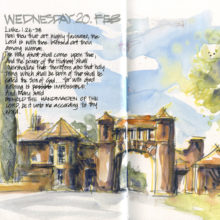 WEDNESDAY 20. FEB
Luke 1:26-38
Hail thou that art highly favoured, the
Lord is with thee: blessed art thou
among women.
The Holy Ghost shall come upon thee,
and the power of the Highest shall
overshadow thee: therefore also that holy
thing which shall be born of thee shall be
called the Son of God. For with God
nothing is impossible.
And Mary said
BEHOLD THE HANDMAIDEN OF THE
LORD, be it unto me according to thy
word.